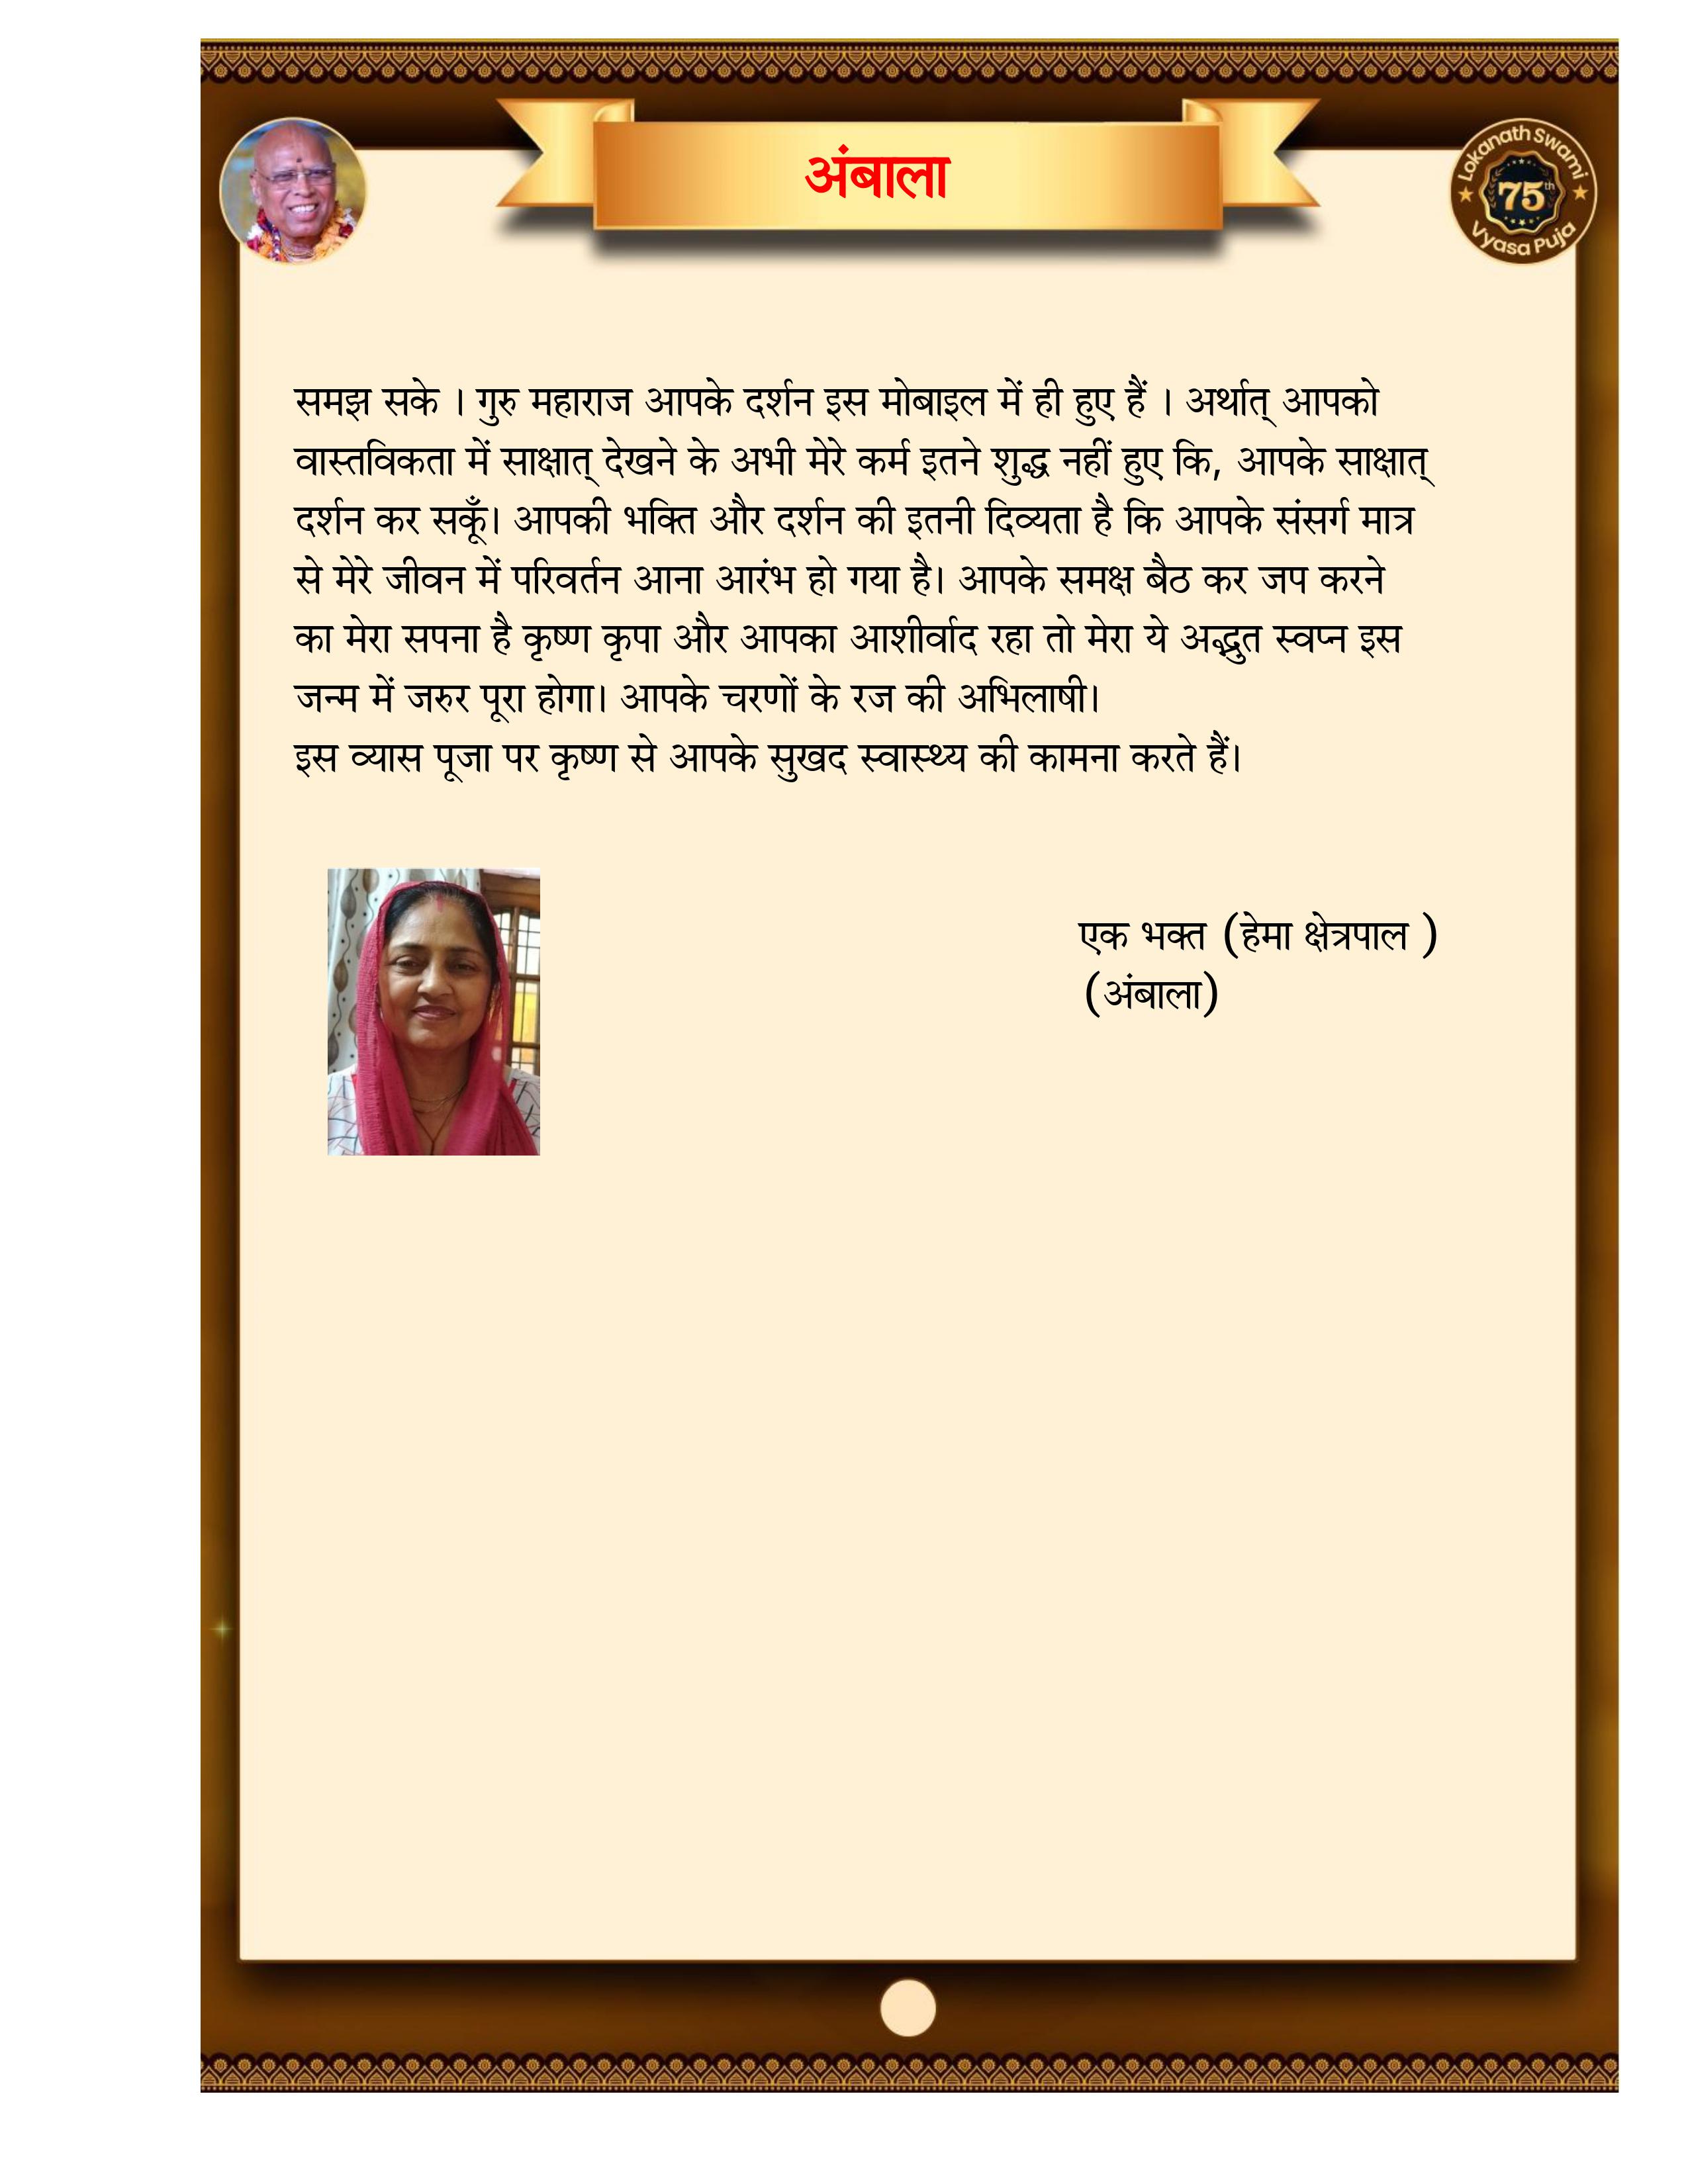 अंबाला
Lokanath Swami
75th
Vyasa Puja
समझ सके । गुरु महाराज आपके दर्शन इस मोबाइल में ही हुए हैं । अर्थात् आपको
वास्तविकता में साक्षात् देखने के अभी मेरे कर्म इतने शुद्ध नहीं हुए कि, आपके साक्षात्
दर्शन कर सकूँ। आपकी भक्ति और दर्शन की इतनी दिव्यता है कि आपके संसर्ग मात्र
से मेरे जीवन में परिवर्तन आना आरंभ हो गया है। आपके समक्ष बैठ कर जप करने
का मेरा सपना है कृष्ण कृपा और आपका आशीर्वाद रहा तो मेरा ये अद्भुत स्वप्न इस
जन्म में जरुर पूरा होगा। आपके चरणों के रज की अभिलाषी।
इस व्यास पूजा पर कृष्ण से आपके सुखद स्वास्थ्य की कामना करते हैं।
एक भक्त (हेमा क्षेत्रपाल )
(अंबाला)